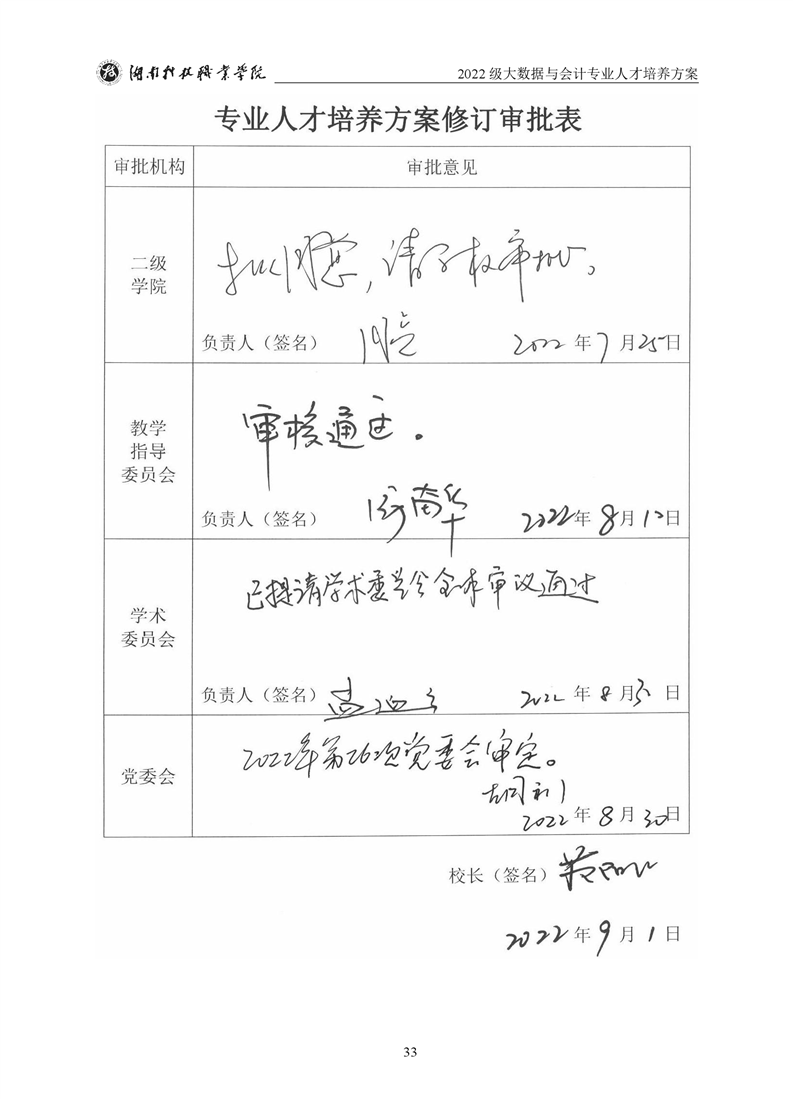 湖南科技职业学院
2022 级大数据与会计专业人才培养方案
专业人才培养方案修订审批表
审批机构
审批意见
二级
学院
拟同意，请学校审批。
负责人（签名）
2022 年 7 月 25 日
教学
指导
委员会
审核通过。
负责人（签名）
2022 年 8 月 10 日
学术
委员会
已提请学术委员会全体审议通过
负责人（签名）
2022 年 8 月 日
党委会
2022年第26次党委会审定。
2022 年 8 月 30 日
校长（签名）
2022 年 9 月 1 日
33